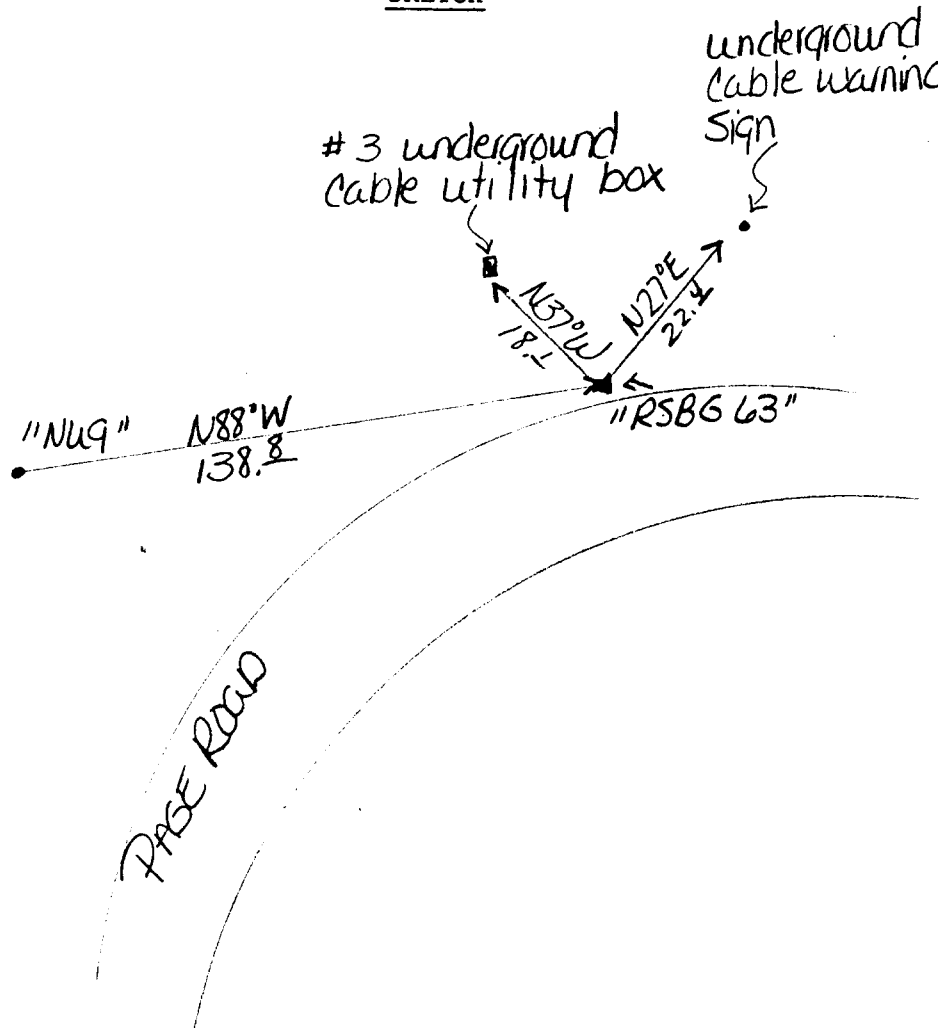 SKETCH
underground
Cable warning
Sign
# 3 underground
Cable utility box
N37°W
18.1
N27°E
22.4
"RSBG 63"
N88°W
138.8
PAGE ROAD